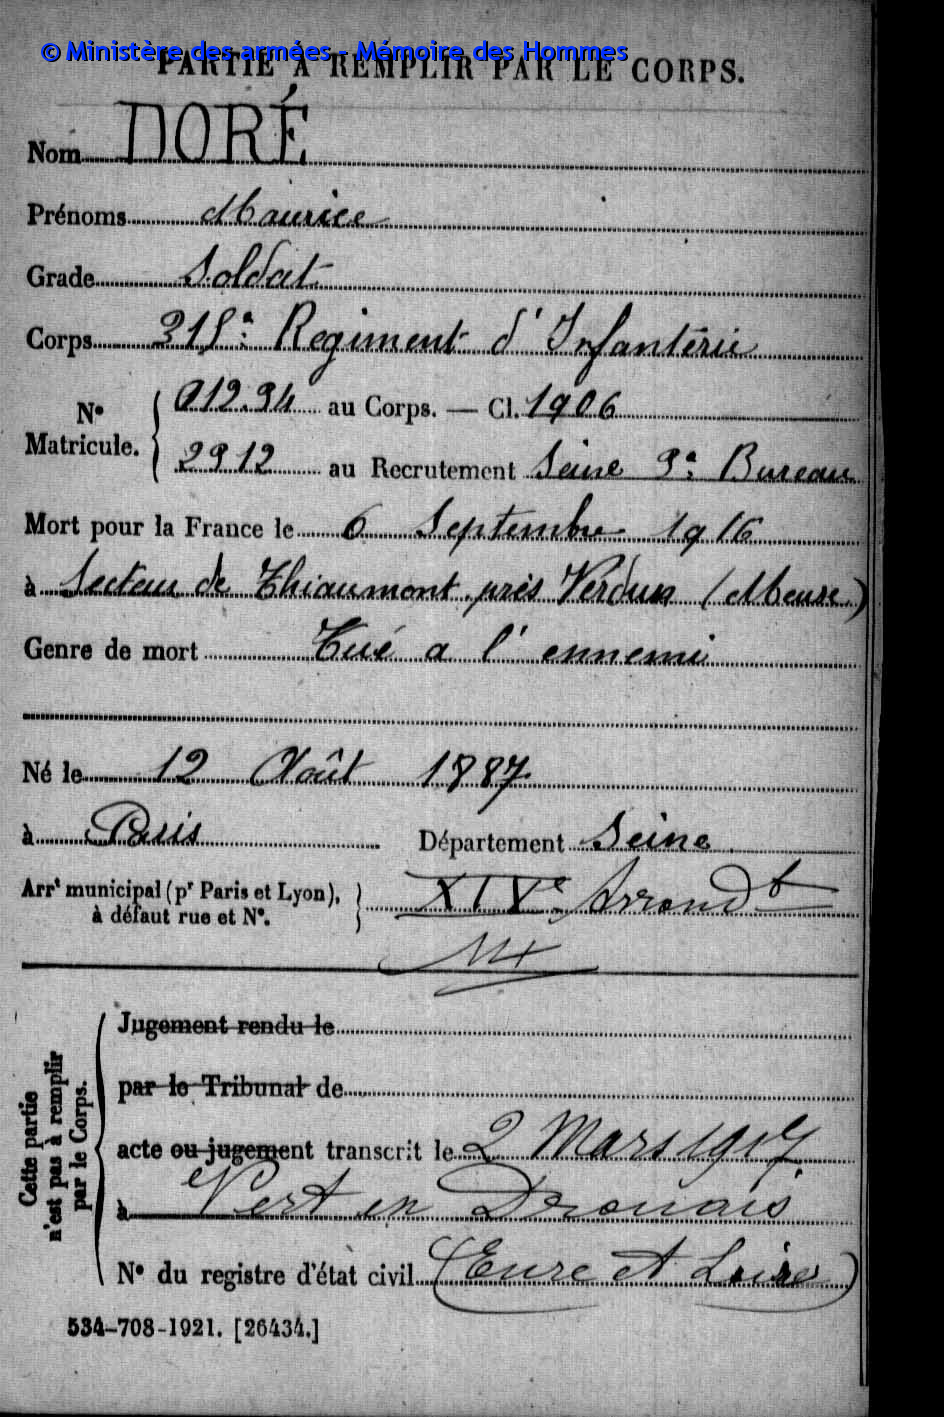 © Ministère des armées - Mémoire des Hommes
PARTIE À REMPLIR PAR LE CORPS.
Nom DORÉ
Prénoms Maurice
Grade Soldat
Corps 315e Regiment d'Infanterie
N° Matricule. 01294 au Corps. — Cl. 1906
2912 au Recrutement Seine 3e Bureau
Mort pour la France le 6 Septembre 1916
à Secteur de Thiaumont près Verdun (Meuse)
Genre de mort Tué a l'ennemi
Né le 12 Août 1887
à Paris Département Seine
Arrt municipal (pr Paris et Lyon), à défaut rue et N°. XIVe Arrondt
Jugement rendu le
par le Tribunal de
acte ou jugement transcrit le 2 Mars 1917
à Vert en Drouais
N° du registre d'état civil (Eure et Loire)
Cette partie n'est pas à remplir par le Corps.
534-708-1921. [26434.]